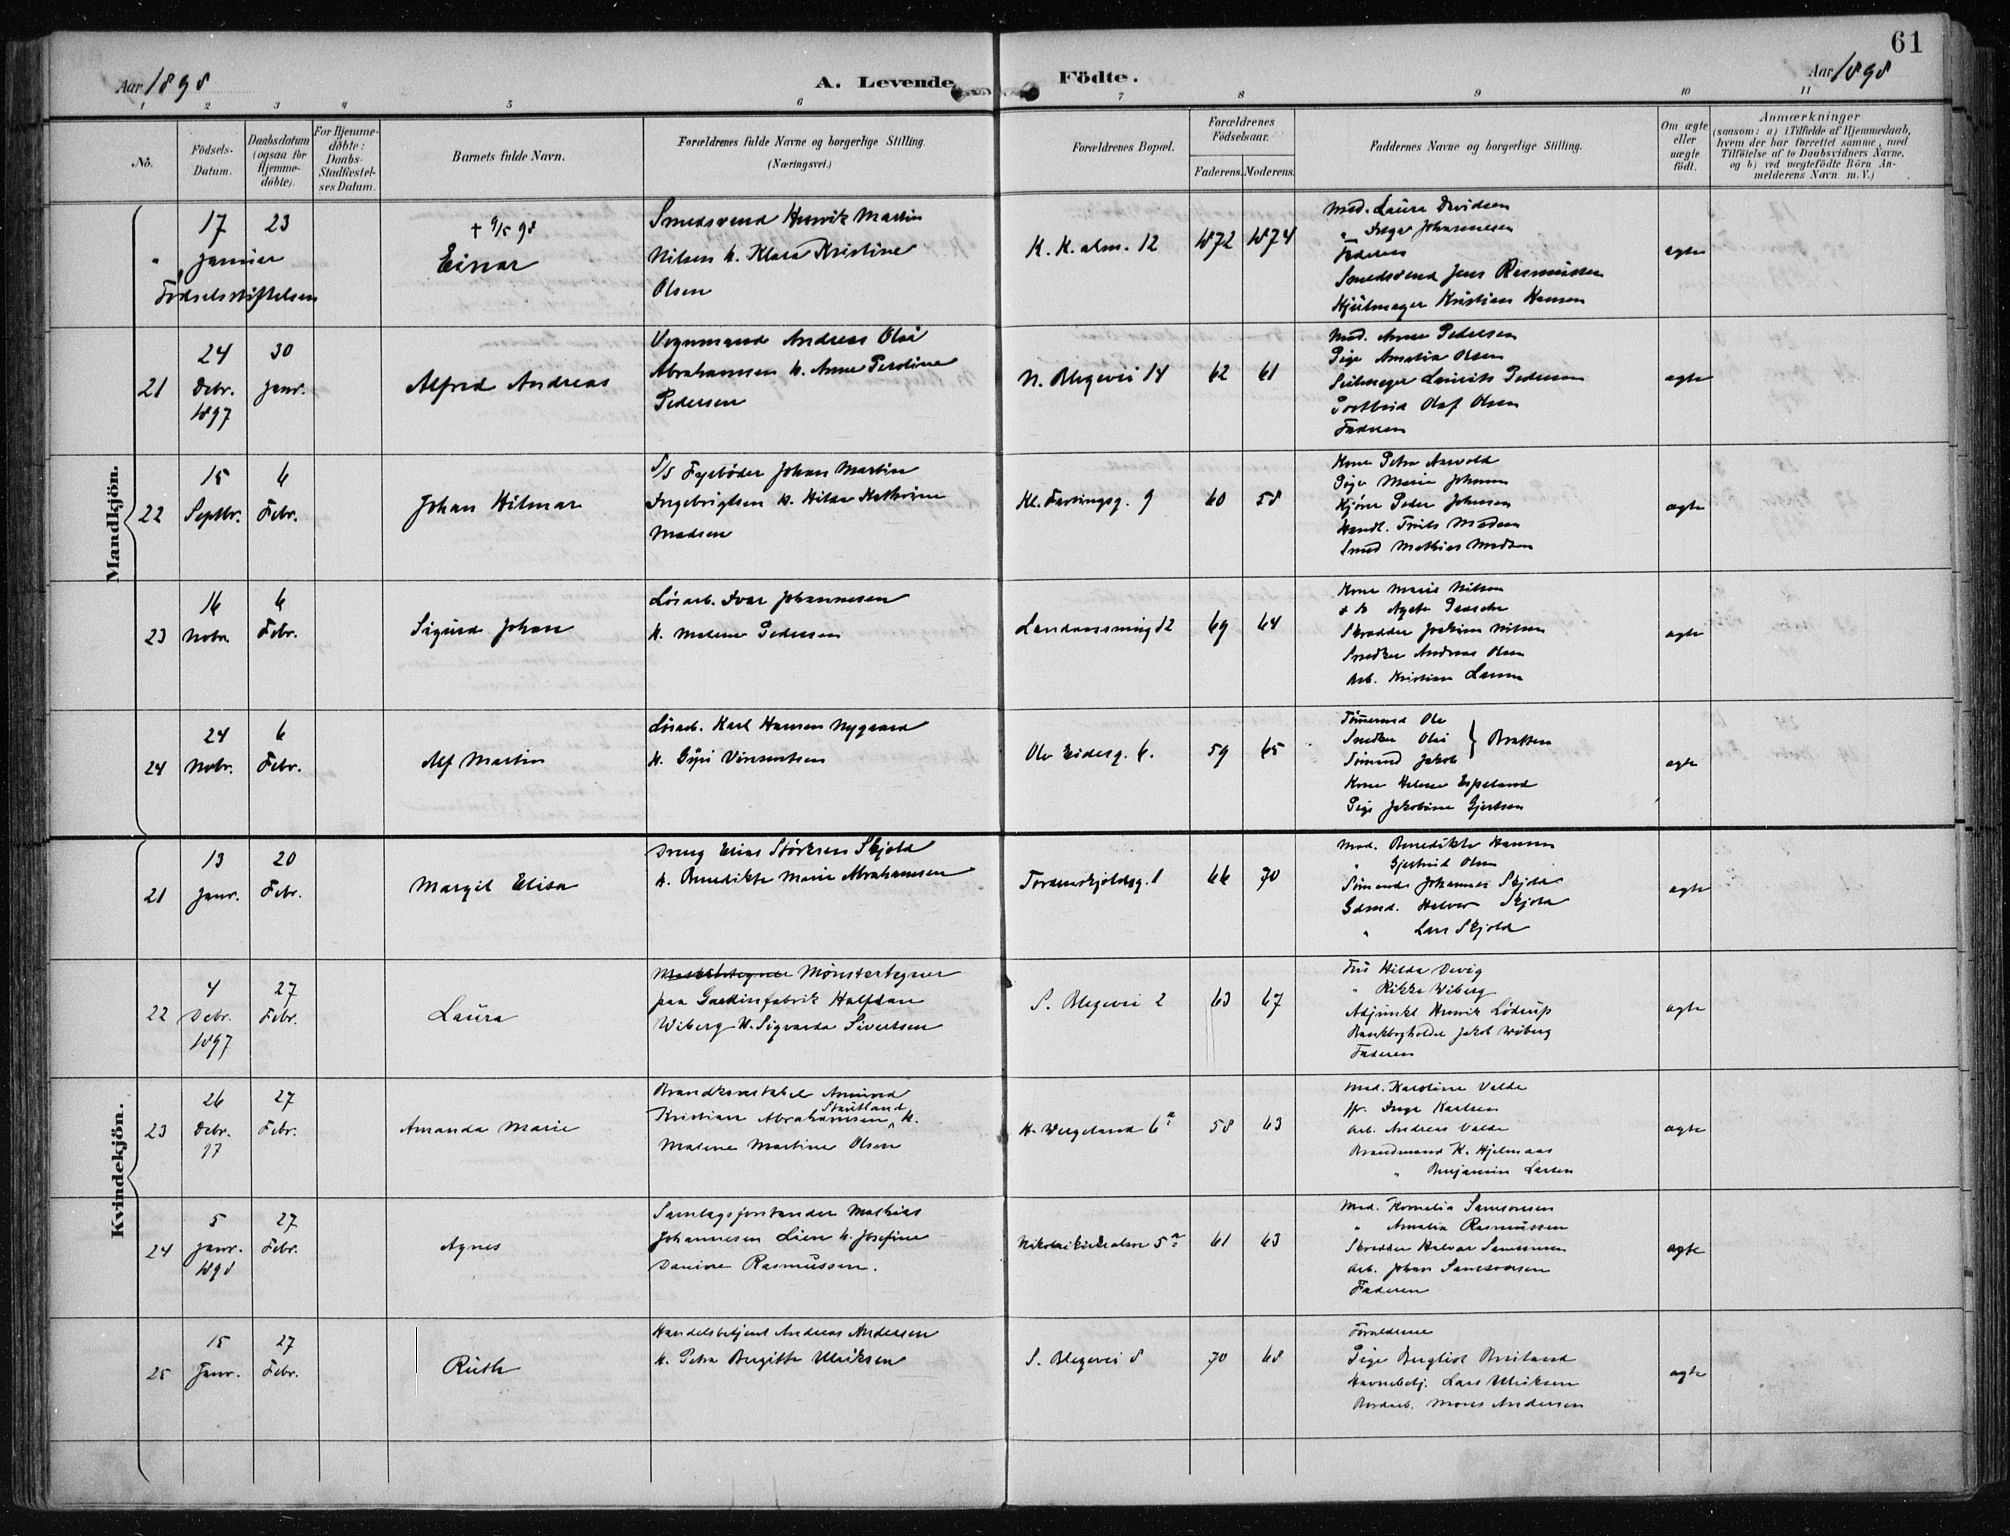 61
Aar 1898
A. Levende Födte.
Aar 1898
1 2 3 4 5 6 7 8 9 10 11
No.
Födsels-Datum.
Daabsdatum (ogsaa for Hjemme-döbte).
For Hjemme-döbte: Daabs-Stadfæstel-ses Datum.
Barnets fulde Navn.
Forældrenes fulde Navne og borgerlige Stilling. (Næringsvei.)
Forældrenes Bopæl.
Forældrenes Födselsaar.
Faderens. Moderens.
Faddernes Navne og borgerlige Stilling.
Om ægte eller uægte födt.
Anmærkninger
(saasom: a) i Tilfælde af Hjemmedaab, hvem der har forrettet samme, med Tilföielse af to Daabsvidners Navne, og b) ved uægtefödte Börn An-melderens Navn m. V.)
Mandkjön.
17 Januar
Fødselsstiftelsen
23
+ 9/5 98
Einar
Smedsvend Henrik Martin
Nilsen h. Klara Kristine
Olsen
K. K. alm. 12
1872 1874
Mad. Laura Davidsen
" Inger Johannesen
Faderen
Smedsvend Jens Rasmussen
Hjulmager Kristian Hansen
ægte
21
24 Debr. 1897
30 Janr.
Alfred Andreas
Vognmand Andreas Olai
Abrahamsen h. Anne Peroline
Pedersen
N. Blegevei 14
62 61
Mad. Anne Pedersen
Pige Amalia Olsen
Seilmager Laurits Pedersen
Postbud Olaf Olsen
Faderen
ægte
22
15 Septbr.
6 Febr.
Johan Hilmar
S/S Fyrbøder Johan Martin
Ingebrigtsen h. Hilda Kathrine
Madsen
Kl. Farvingsg. 9
60 58
Kone Petra Aarvold
Pige Marie Johnsen
Kjører Peder Johnsen
Handl. Troels Madsen
Smed Mathias Madsen
ægte
23
16 Nobr.
6 Febr.
Sigurd Johan
Løsarb. Ivar Johannesen
h. Malene Pedersen
Landaassming 12
69 64
Kone Marie Nilsen
Skrædder Joakim Nilsen
Snedker Andreas Olsen
Arb. Kristian Larsen
ægte
24
24 Nobr.
6 Febr.
Alf Martin
Løsarb. Karl Hansen Nygaard
h. Gyri Vinsentsen
Ole Eidesg. 6.
59 65
Tømermd Ole
Snedker Olai } Bratten
Sømand Jakob
Kone Helene Espeland
Pige Jakobine Gjertsen
ægte
Kvindekjön.
21
13 Janr.
20 Febr.
Margit Elisa
Dreng Elias Størksen Skjold
h. Benedikte Marie Abrahamsen
Tordenskjoldsg. 1
66 70
Mad. Benedikte Hansen
" Gjertrud Olsen
Sømand Johannes Skjold
Gdmd. Halvor Skjold
" Lars Skjold
ægte
22
4 Debr. 1897
27 Febr.
Laura
Mønstertegner
paa Gardinfabrik Halfdan
Wiberg h. Sigvarda Sivertsen
S. Blegevei 2
63 67
Fru Hilda Devig
" Rikke Wiberg
Adjunkt Henrik Lødrup
Bankbogholder Jakob Wiberg
Faderen
ægte
23
26 Debr. 97
27 Febr.
Amanda Marie
Brandkonstabel Amund
Kristian Abrahamsen Stautland, h.
Malene Martine Olsen
H. Wergeland 6a
58 63
Mad. Karoline Valde
Fr. Inga Karlsen
Arb. Andreas Valde
Brandmand K. Hjelmaas
" Benjamin Larsen
ægte
24
5 Janr. 1898
27 Febr.
Agnes
Samlagsforstander Mathias
Johannesen Lien h. Josefine
Danine Rasmussen.
Nikolaikirkealm 5a
61 63
Mad. Kornelia Samsonsen
" Amalia Rasmussen
Skrædder Halvar Samsonsen
Arb. Johan Samsonsen
Faderen
ægte
25
15 Janr.
27 Febr.
Ruth
Handelsbetjent Andreas Andersen
h. Petra Bergitte Ulriksen
S. Blegevei 8
70 68
Forældrene
Pige Bergliot Breiland
Havnebetj. Lars Ulriksen
Bordarb. Mons Andersen
ægte